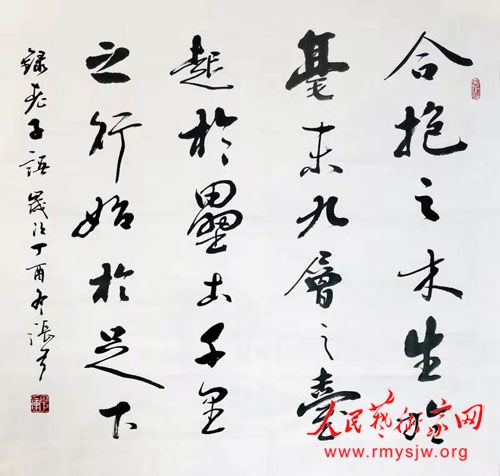 合抱之木生於
毫末九層之臺
起於壘土千里
之行始於足下
錄老子語歲次丁酉張
人民藝術家网
www.rmysjw.org